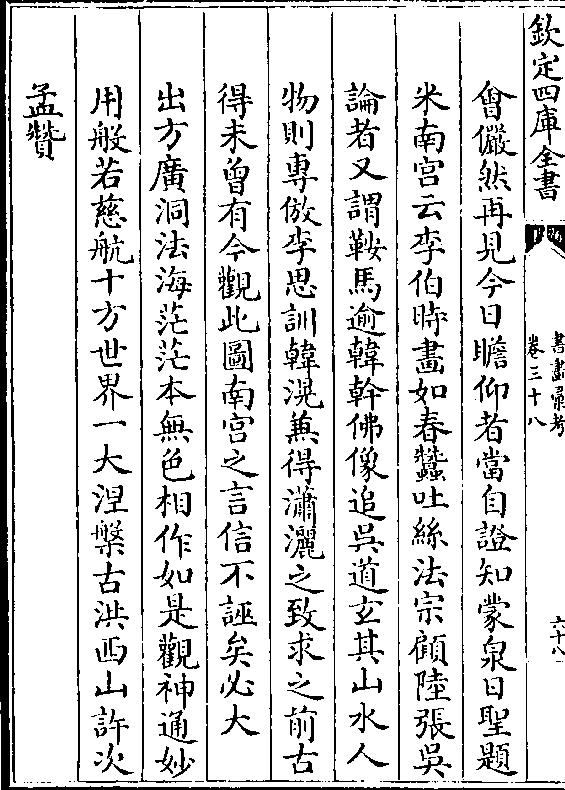 欽定四庫全書
書畫彙考
卷三十八
六十八
會儼然再見今日瞻仰者當自證知蒙泉日聖題
米南宫云李伯時畫如春蠶吐絲法宗顧陸張吳
論者又謂鞍馬逾韓幹佛像追吳道玄其山水人
物則專倣李思訓韓滉兼得瀟灑之致求之前古
得未曾有今觀此圖南宫之言信不誣矣必大
出方廣洞法海茫茫本無色相作如是觀神通妙
用般若慈航十方世界一大涅槃古洪西山許次
孟贊